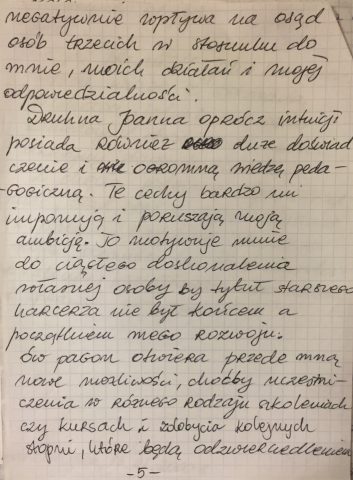 negatywnie wpływa na osąd
osób trzecich w stosunku do
mnie, moich działań i mojej
odpowiedzialności.
Druhna Joanna oprócz intuicji
posiada również duże doświad
czenie i ogromną wiedzę peda-
gogiczną. Te cechy bardzo mi
imponują i poruszają moją
ambicją. To motywuje mnie
do ciągłego doskonalenia
własnej osoby by tytuł starszego
harcerza nie był końcem a
początkiem mego rozwoju.
Ów pagon otwiera przede mną
nowe możliwości, choćby uczestni-
czenia w różnego rodzaju szkoleniach
czy kursach i zdobycia kolejnych
stopni, które będą odzwierciedleniem
-5-